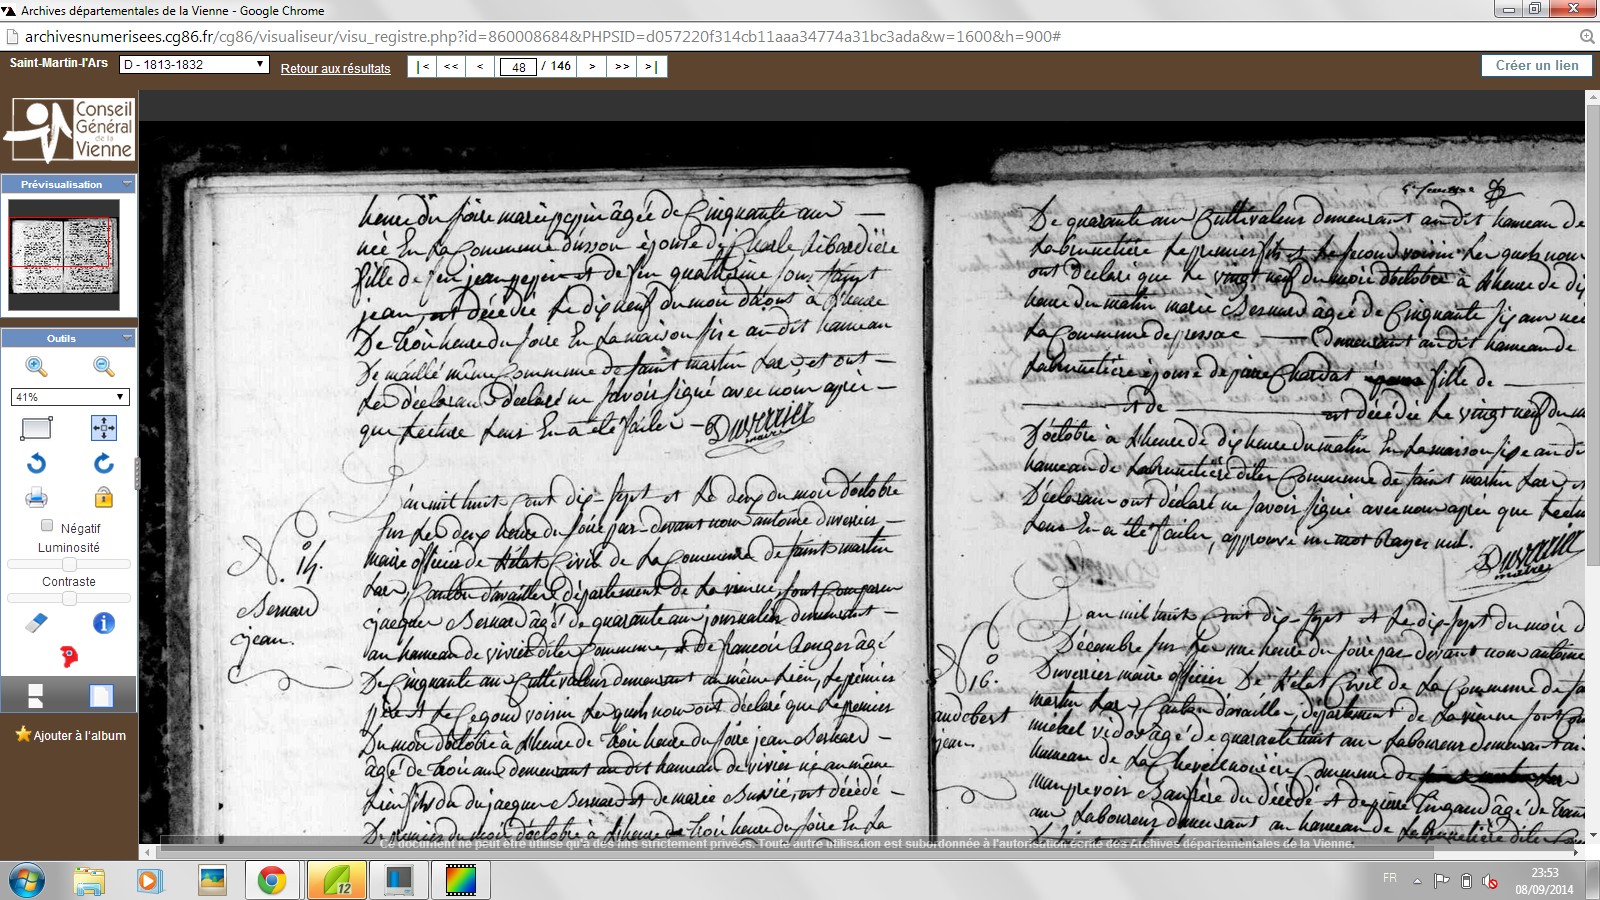 Archives départementales de la Vienne - Google Chrome
archivesnumerisees.cg86.fr/cg86/visualiseur/visu_registre.php?id=860008684&PHPSID=d057220f314cb11aaa34774a31bc3ada&w=1600&h=900#
Saint-Martin-l'Ars
D - 1813-1832
Retour aux résultats
|< << < 48 / 146 > >> >|
Créer un lien
Conseil
Général
de la
Vienne
Prévisualisation
Outils
41%
Négatif
Luminosité
Contraste
Ajouter à l'album
heure du soire marie pepin âgée de Cinquante ans
née En La Commune dusson épouse de Charle
fille de feu jean pepin et de feu
jean est décédée le dix neuf du mois
De trois heure du soire En La maison sise au dit hameau
De maillé même Commune de saint martin Lars et ont
Les déclarans déclaré ne savoir signé avec nous après
que Lecture Leur En a été faite
Duverrier
maire
L'an mil huit Cent dix-sept et Le deux du mois d'octobre
sur Les deux heure du soire par-devant nous antoine duverrier
maire officier de L'état Civil de La Commune de saint martin
Lars, Canton d'availles département de La vienne, sont Comparu
jacques Bernard âgé de quarante ans journalier demeurant
au hameau de vivier ditte Commune, et De francois âgé
De Cinquante ans Cultivateur demeurant au même Lieu, Le premier
père et Le segond voisin Les quels nous ont déclaré que Le premier
Du mois d'octobre à L'heure de trois heure du soire jean Bernard
âgé de trois ans demeurant au dit hameau de vivier né au même
Lieu fils du dit jacques Bernard et de marie est décédé
De premier du mois d'octobre à L'heure de trois heure du soire En La
No. 14.
Bernard
jean.
De quarante ans Cultivateur demeurant au dit hameau de
Labrunetière Le premier fils et Le second voisin Les quels nous
ont déclaré que Le vingt neuf du mois d'octobre à L'heure de dix
heure du matin marie Bernard âgée de Cinquante six ans née
La Commune de pressac demeurant au dit hameau de
Labrunetière épouse de pierre Chardat fille de
et de est décédée Le vingt neuf du m
D'octobre à L'heure de dix heure du matin En La maison sise au di
hameau de Labrunetière ditte Commune de saint martin Lars
Déclarans ont déclaré ne savoir signé avec nous après que Lectu
Leur En a été faite, approuvé un mot rayer nul.
Duverrier
maire
L'an mil huit Cent dix-sept et Le dix-sept du mois d
Décembre sur Les une heure du soire par-devant nous antoine
Duverrier maire officier De L'état Civil de La Commune de sa
martin Lars, Canton d'availles, département de La vienne sont Com
michel vidot âgé de quarante huit ans Laboureur demeurant au
hameau de La Commune de
Beaufrère du décédé et de pierre âgé de
ans Laboureur demeurant au hameau de Labrunetière ditte Com
No. 16.
audebert
jean.
Ce document ne peut être utilisé qu'à des fins strictement privées. Toute autre utilisation est subordonnée à l'autorisation écrite des Archives départementales de la Vienne.
12
FR
23:53
08/09/2014